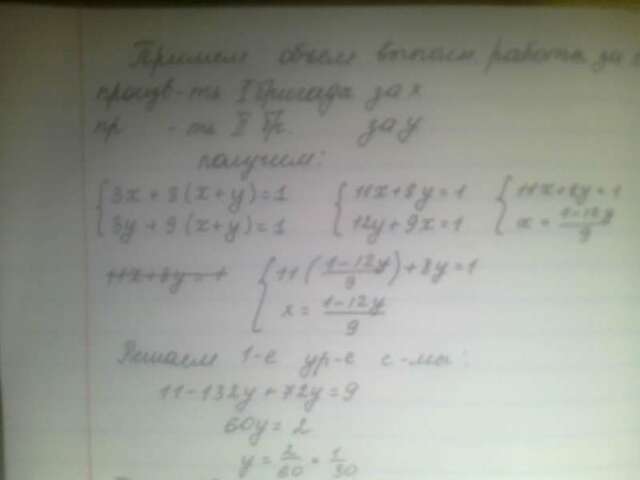 Примем объем выполн. работы за 1
произв-ть I бригада за x
пр -ть II бр. за y
получим:
{3x + 8(x+y)=1 {11x+8y=1 {11x+8y=1
{3y + 9(x+y)=1 {12y+9x=1 {x = (1-12y)/9
11x+8y=1 {11((1-12y)/9)+8y=1
{x = (1-12y)/9
Решаем 1-е ур-е с-мы:
11-132y+72y=9
60y = 2
y = 2/60 = 1/30